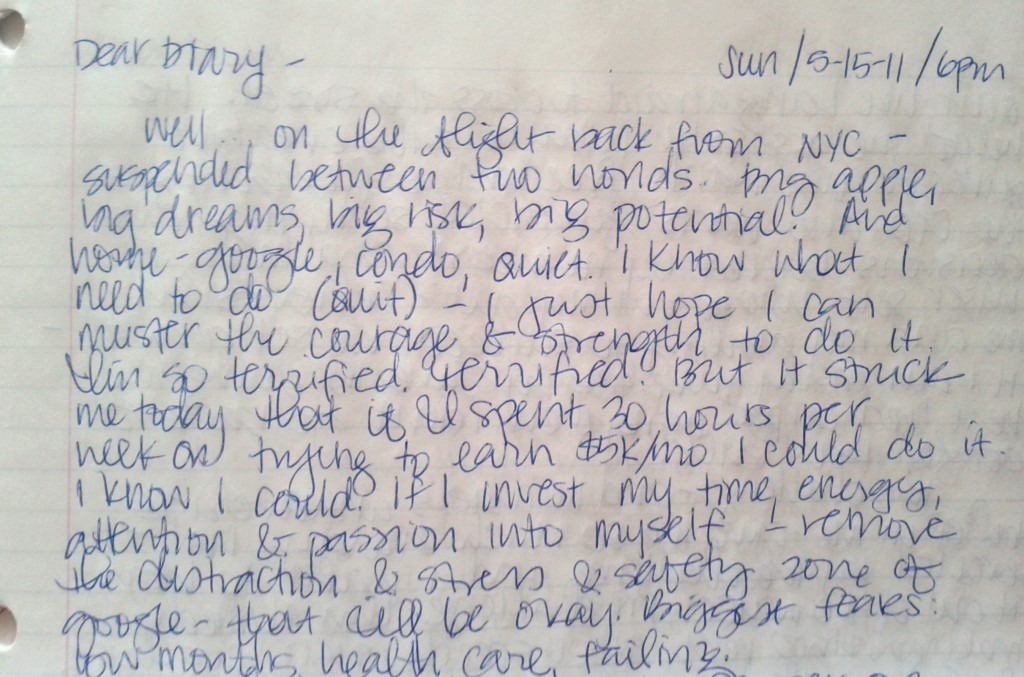 Dear Diary - Sun/5-15-11/6pm
Well... on the flight back from NYC -
suspended between two worlds. Big apple,
big dreams, big risk, big potential. And
home - google, condo, quiet. I know what I
need to do (quit) - I just hope I can
muster the courage & strength to do it
I'm so terrified. Terrified. But it struck
me today that if I spent 30 hours per
week on trying to earn $5K/mo I could do it.
I know I could. If I invest my time, energy,
attention & passion into myself - remove
the distraction & stress & safety zone of
google - that all be okay. Biggest fears:
low months, health care, failing.